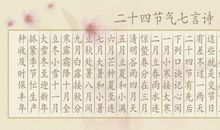 二十四节气七言诗
这些就是交节日
有差不过一两天
二十四节有先后
下列口诀记心间
一月小寒接大寒
二月立春雨水连
惊蛰春分在三月
清明谷雨四月天
五月立夏和小满
六月芒种夏至连
七月小暑和大暑
立秋处暑八月间
九月白露接秋分
寒露霜降十月全
立冬小雪十一月
大雪冬至迎新年
抓紧季节忙生产
种收及时保丰年